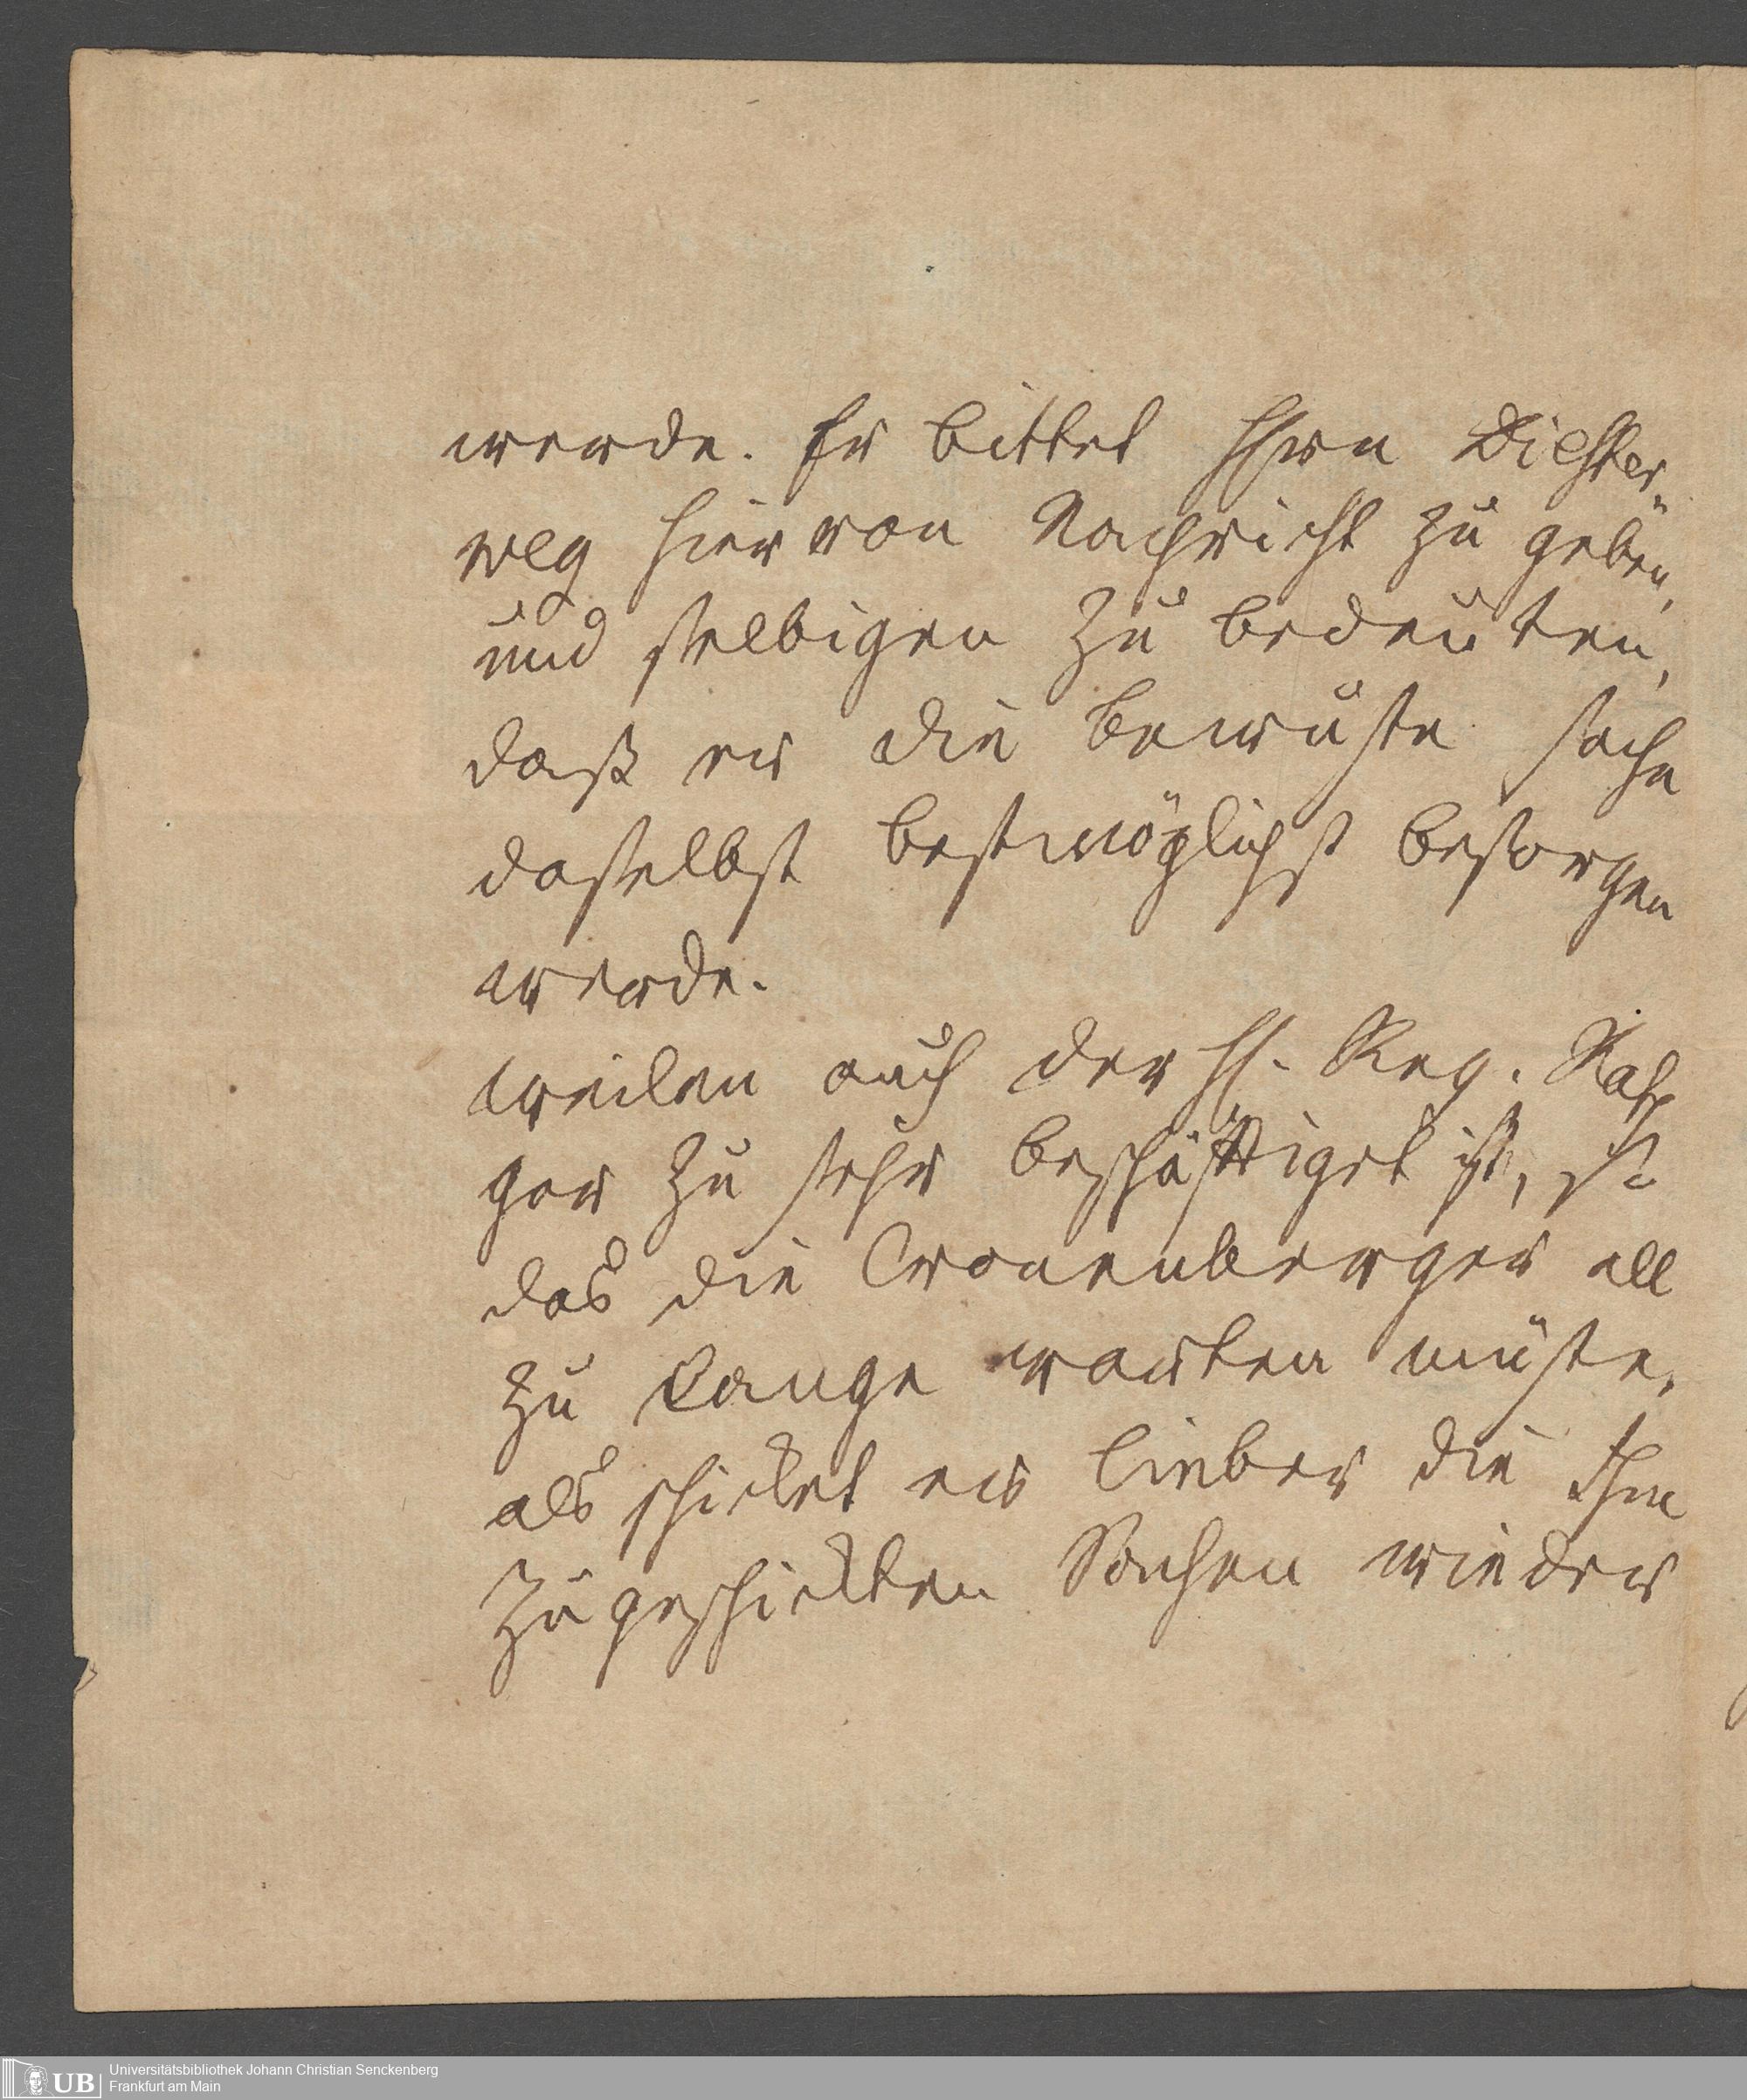 werde. Er bittet Hhrn Diester-
weg hiervon Nachricht zu geben,
und selbigen zu bedeuten,
daß er die bewuste sache
daselbst bestmöglichst besorgen
werde.
weilen auch der H. Reg. Rath
gar zu sehr beschäftiget ist, so
das die Cronenberger all
zu lange warten müste,
als schicket er lieber die Ihm
zugeschickten Sachen wieder
UB Universitätsbibliothek Johann Christian Senckenberg
Frankfurt am Main